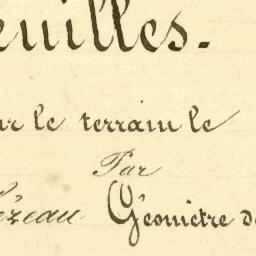 euilles.
ur le terrain le
Par
ézeau Géomètre de